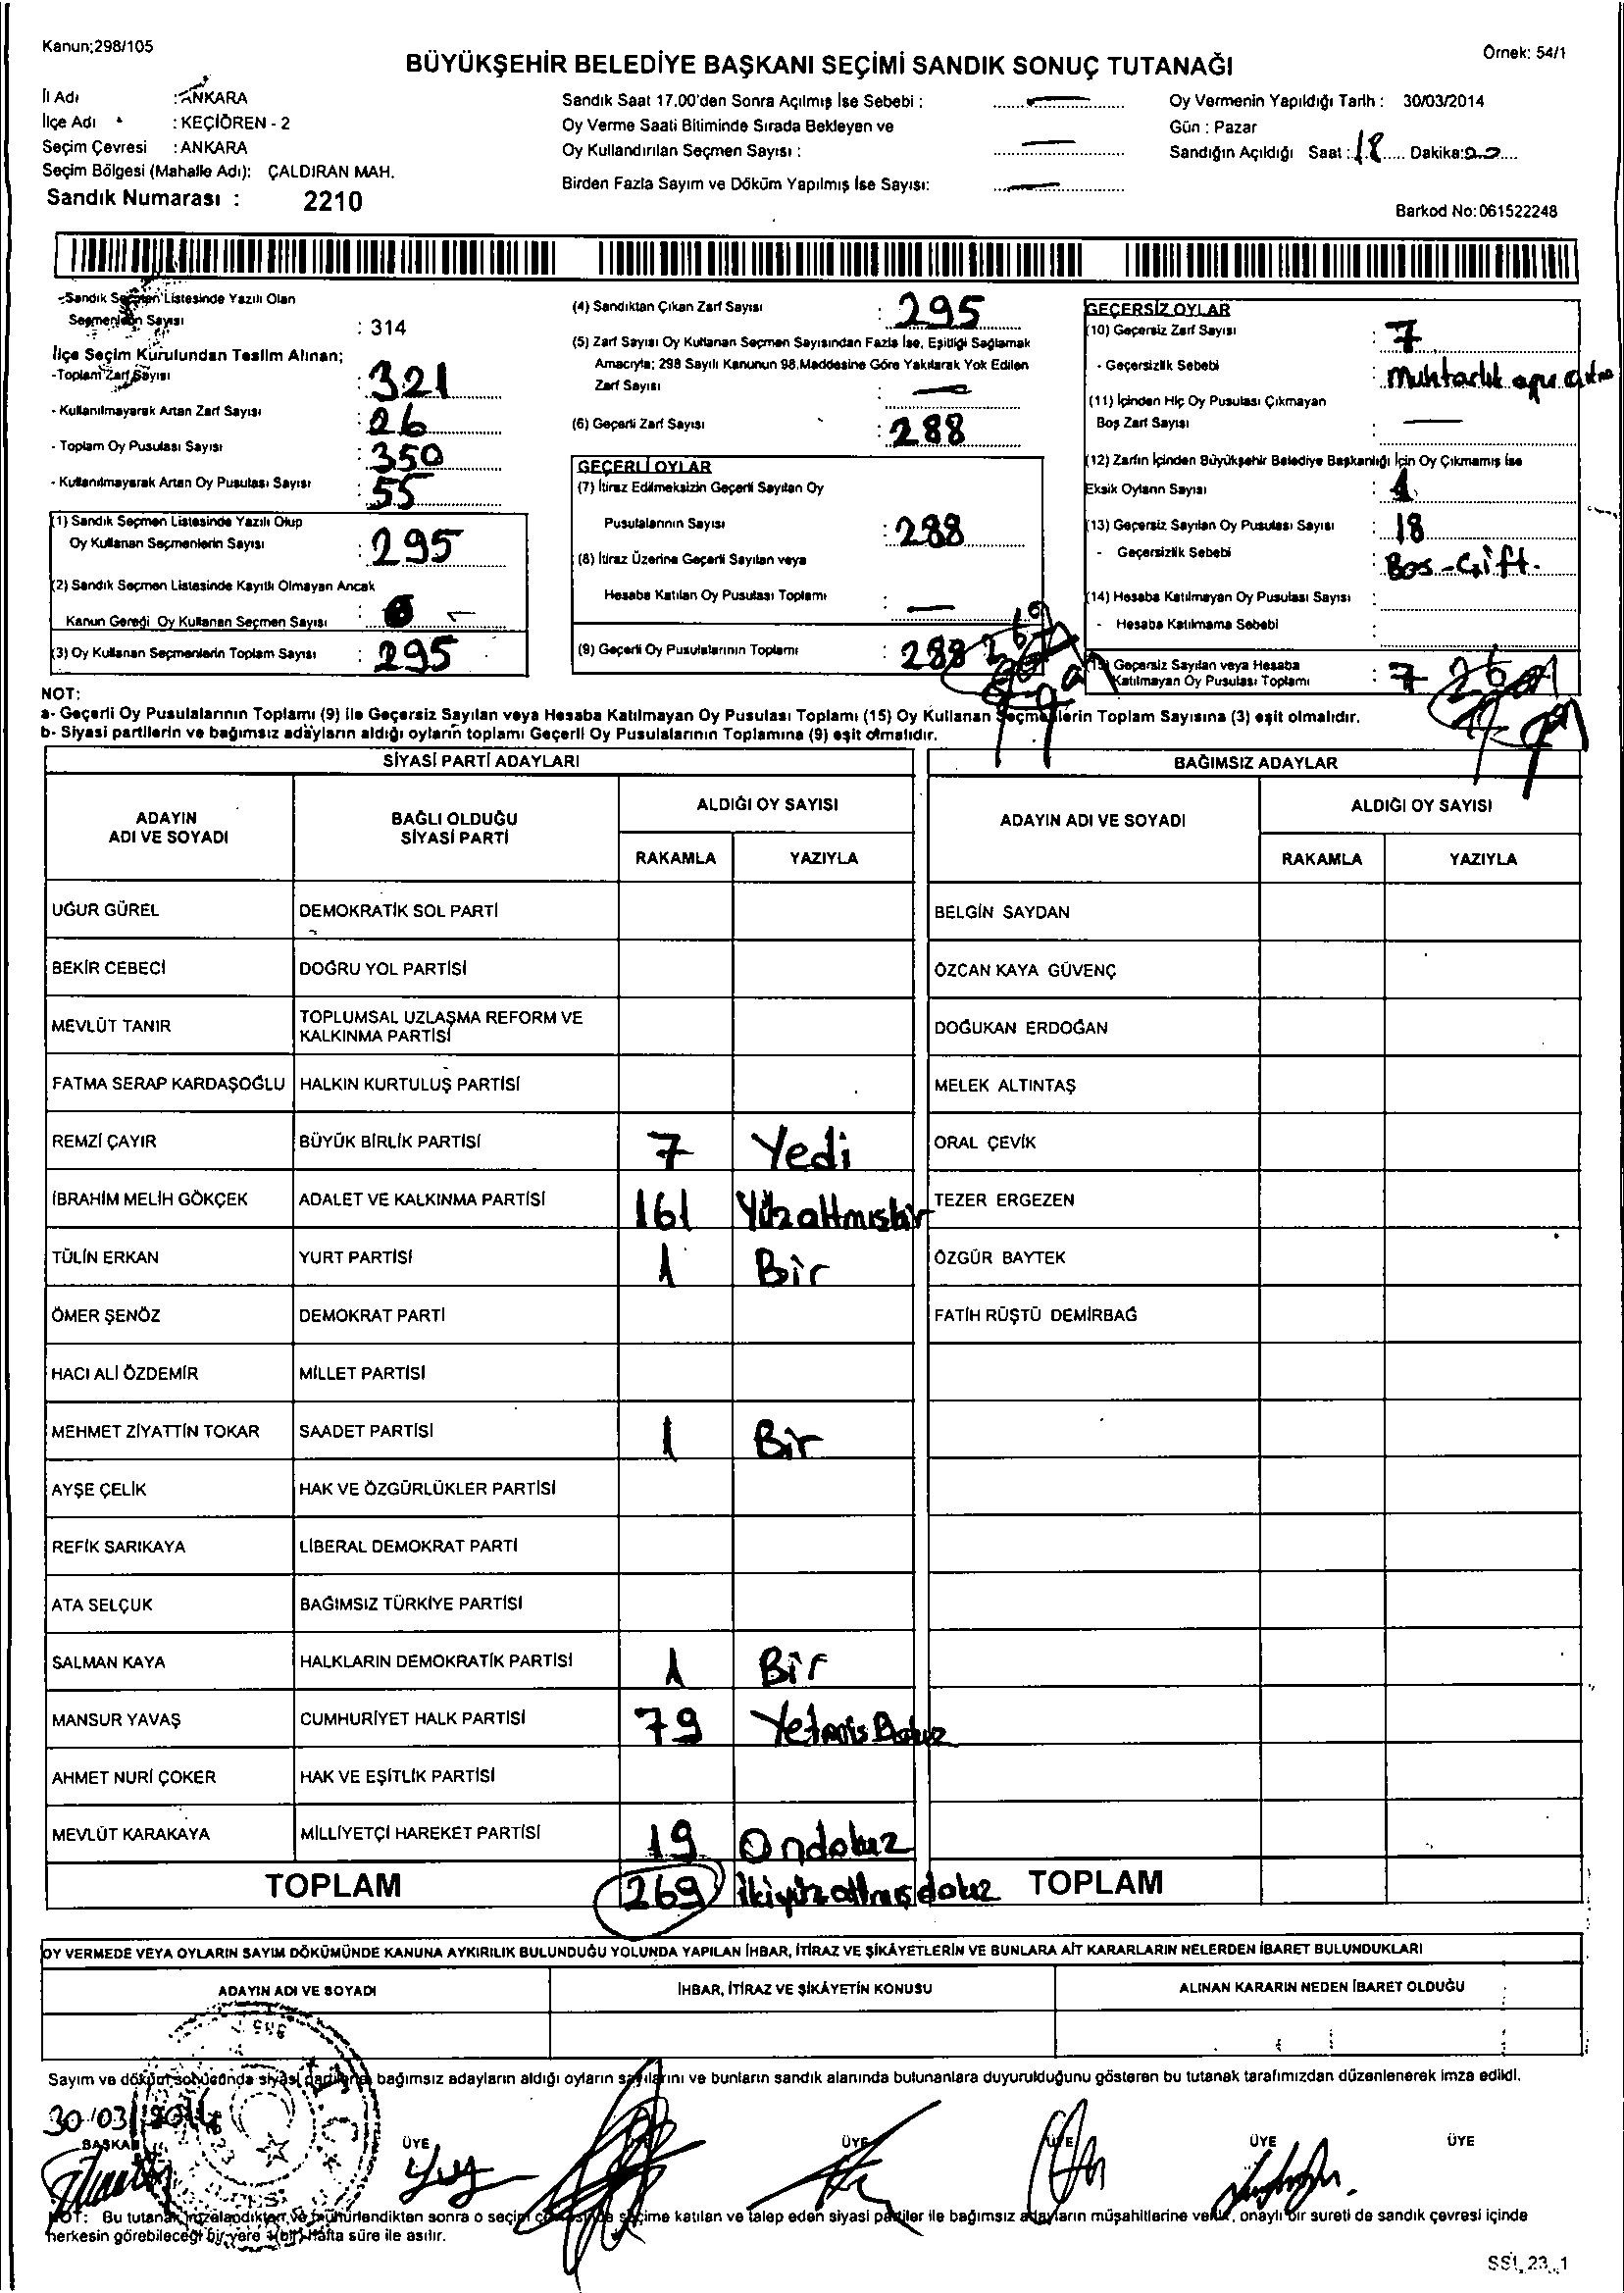 Kanun;298/105
Örnek: 54/1
BÜYÜKŞEHİR BELEDİYE BAŞKANI SEÇİMİ SANDIK SONUÇ TUTANAĞI
İl Adı :ANKARA
İlçe Adı : KEÇİÖREN - 2
Seçim Çevresi : ANKARA
Seçim Bölgesi (Mahalle Adı): ÇALDIRAN MAH.
Sandık Numarası : 2210
Sandık Saat 17.00'den Sonra Açılmış İse Sebebi :
Oy Verme Saati Bitiminde Sırada Bekleyen ve
Oy Kullandırılan Seçmen Sayısı :
Birden Fazla Sayım ve Döküm Yapılmış İse Sayısı:
Oy Vermenin Yapıldığı Tarih : 30/03/2014
Gün : Pazar
Sandığın Açıldığı Saat : 18 Dakika: 00
Barkod No:061522248
-Sandık Seçmen Listesinde Yazılı Olan
Seçmenlerin Sayısı : 314
İlçe Seçim Kurulundan Teslim Alınan;
-Toplam Zarf Sayısı : 321
- Kullanılmayarak Artan Zarf Sayısı : 26
- Toplam Oy Pusulası Sayısı : 350
- Kullanılmayarak Artan Oy Pusulası Sayısı : 55
(1) Sandık Seçmen Listesinde Yazılı Olup
Oy Kullanan Seçmenlerin Sayısı : 295
(2) Sandık Seçmen Listesinde Kayıtlı Olmayan Ancak
Kanun Gereği Oy Kullanan Seçmen Sayısı :
(3) Oy Kullanan Seçmenlerin Toplam Sayısı : 295
(4) Sandıktan Çıkan Zarf Sayısı : 295
(5) Zarf Sayısı Oy Kullanan Seçmen Sayısından Fazla İse, Eşitliği Sağlamak
Amacıyla; 298 Sayılı Kanunun 98.Maddesine Göre Yakılarak Yok Edilen
Zarf Sayısı :
(6) Geçerli Zarf Sayısı : 288
GEÇERLİ OYLAR
(7) İtiraz Edilmeksizin Geçerli Sayılan Oy
Pusulalarının Sayısı : 288
(8) İtiraz Üzerine Geçerli Sayılan veya
Hesaba Katılan Oy Pusulası Toplamı :
(9) Geçerli Oy Pusulalarının Toplamı : 288 269
GEÇERSİZ OYLAR
(10) Geçersiz Zarf Sayısı : 7
- Geçersizlik Sebebi : Muhtarlık
(11) İçinden Hiç Oy Pusulası Çıkmayan
Boş Zarf Sayısı :
(12) Zarfın İçinden Büyükşehir Belediye Başkanlığı İçin Oy Çıkmamış İse
Eksik Oyların Sayısı : 1
(13) Geçersiz Sayılan Oy Pusulası Sayısı : 18
- Geçersizlik Sebebi : Bos-Çift.
(14) Hesaba Katılmayan Oy Pusulası Sayısı :
- Hesaba Katılmama Sebebi :
(15) Geçersiz Sayılan veya Hesaba
Katılmayan Oy Pusulası Toplamı : 7 26
NOT:
a- Geçerli Oy Pusulalarının Toplamı (9) ile Geçersiz Sayılan veya Hesaba Katılmayan Oy Pusulası Toplamı (15) Oy Kullanan Seçmenlerin Toplam Sayısına (3) eşit olmalıdır.
b- Siyasi partilerin ve bağımsız adayların aldığı oyların toplamı Geçerli Oy Pusulalarının Toplamına (9) eşit olmalıdır.
SİYASİ PARTİ ADAYLARI
BAĞIMSIZ ADAYLAR
ADAYIN ADI VE SOYADI
BAĞLI OLDUĞU SİYASİ PARTİ
ALDIĞI OY SAYISI
RAKAMLA YAZIYLA
ADAYIN ADI VE SOYADI
ALDIĞI OY SAYISI
RAKAMLA YAZIYLA
UĞUR GÜREL DEMOKRATİK SOL PARTİ BELGİN SAYDAN
BEKİR CEBECİ DOĞRU YOL PARTİSİ ÖZCAN KAYA GÜVENÇ
MEVLÜT TANIR TOPLUMSAL UZLAŞMA REFORM VE KALKINMA PARTİSİ DOĞUKAN ERDOĞAN
FATMA SERAP KARDAŞOĞLU HALKIN KURTULUŞ PARTİSİ MELEK ALTINTAŞ
REMZİ ÇAYIR BÜYÜK BİRLİK PARTİSİ 7 Yedi ORAL ÇEVİK
İBRAHİM MELİH GÖKÇEK ADALET VE KALKINMA PARTİSİ 161 Yüzaltmışbir TEZER ERGEZEN
TÜLİN ERKAN YURT PARTİSİ 1 Bir ÖZGÜR BAYTEK
ÖMER ŞENÖZ DEMOKRAT PARTİ FATİH RÜŞTÜ DEMİRBAĞ
HACI ALİ ÖZDEMİR MİLLET PARTİSİ
MEHMET ZİYATTİN TOKAR SAADET PARTİSİ 1 Bir
AYŞE ÇELİK HAK VE ÖZGÜRLÜKLER PARTİSİ
REFİK SARIKAYA LİBERAL DEMOKRAT PARTİ
ATA SELÇUK BAĞIMSIZ TÜRKİYE PARTİSİ
SALMAN KAYA HALKLARIN DEMOKRATİK PARTİSİ 1 Bir
MANSUR YAVAŞ CUMHURİYET HALK PARTİSİ 79 YetmisDokuz
AHMET NURİ ÇOKER HAK VE EŞİTLİK PARTİSİ
MEVLÜT KARAKAYA MİLLİYETÇİ HAREKET PARTİSİ 19 Ondokuz
TOPLAM 269 ikiyüzaltmışdokuz TOPLAM
OY VERMEDE VEYA OYLARIN SAYIM DÖKÜMÜNDE KANUNA AYKIRILIK BULUNDUĞU YOLUNDA YAPILAN İHBAR, İTİRAZ VE ŞİKÂYETLERİN VE BUNLARA AİT KARARLARIN NELERDEN İBARET BULUNDUKLARI
ADAYIN ADI VE SOYADI İHBAR, İTİRAZ VE ŞİKÂYETİN KONUSU ALINAN KARARIN NEDEN İBARET OLDUĞU
Sayım ve döküm sonucunda siyasi partilerin, bağımsız adayların aldığı oyların sayılarını ve bunların sandık alanında bulunanlara duyurulduğunu gösteren bu tutanak tarafımızdan düzenlenerek imza edildi.
30/03/2014
BAŞKAN ÜYE ÜYE ÜYE ÜYE ÜYE ÜYE
NOT: Bu tutanak imzalandıktan ve mühürlendikten sonra o seçim çevresinde seçime katılan ve talep eden siyasi partiler ile bağımsız adayların müşahitlerine verilir, onaylı bir sureti de sandık çevresi içinde
herkesin görebileceği bir yere 1(bir) hafta süre ile asılır.
SSİ_23_1